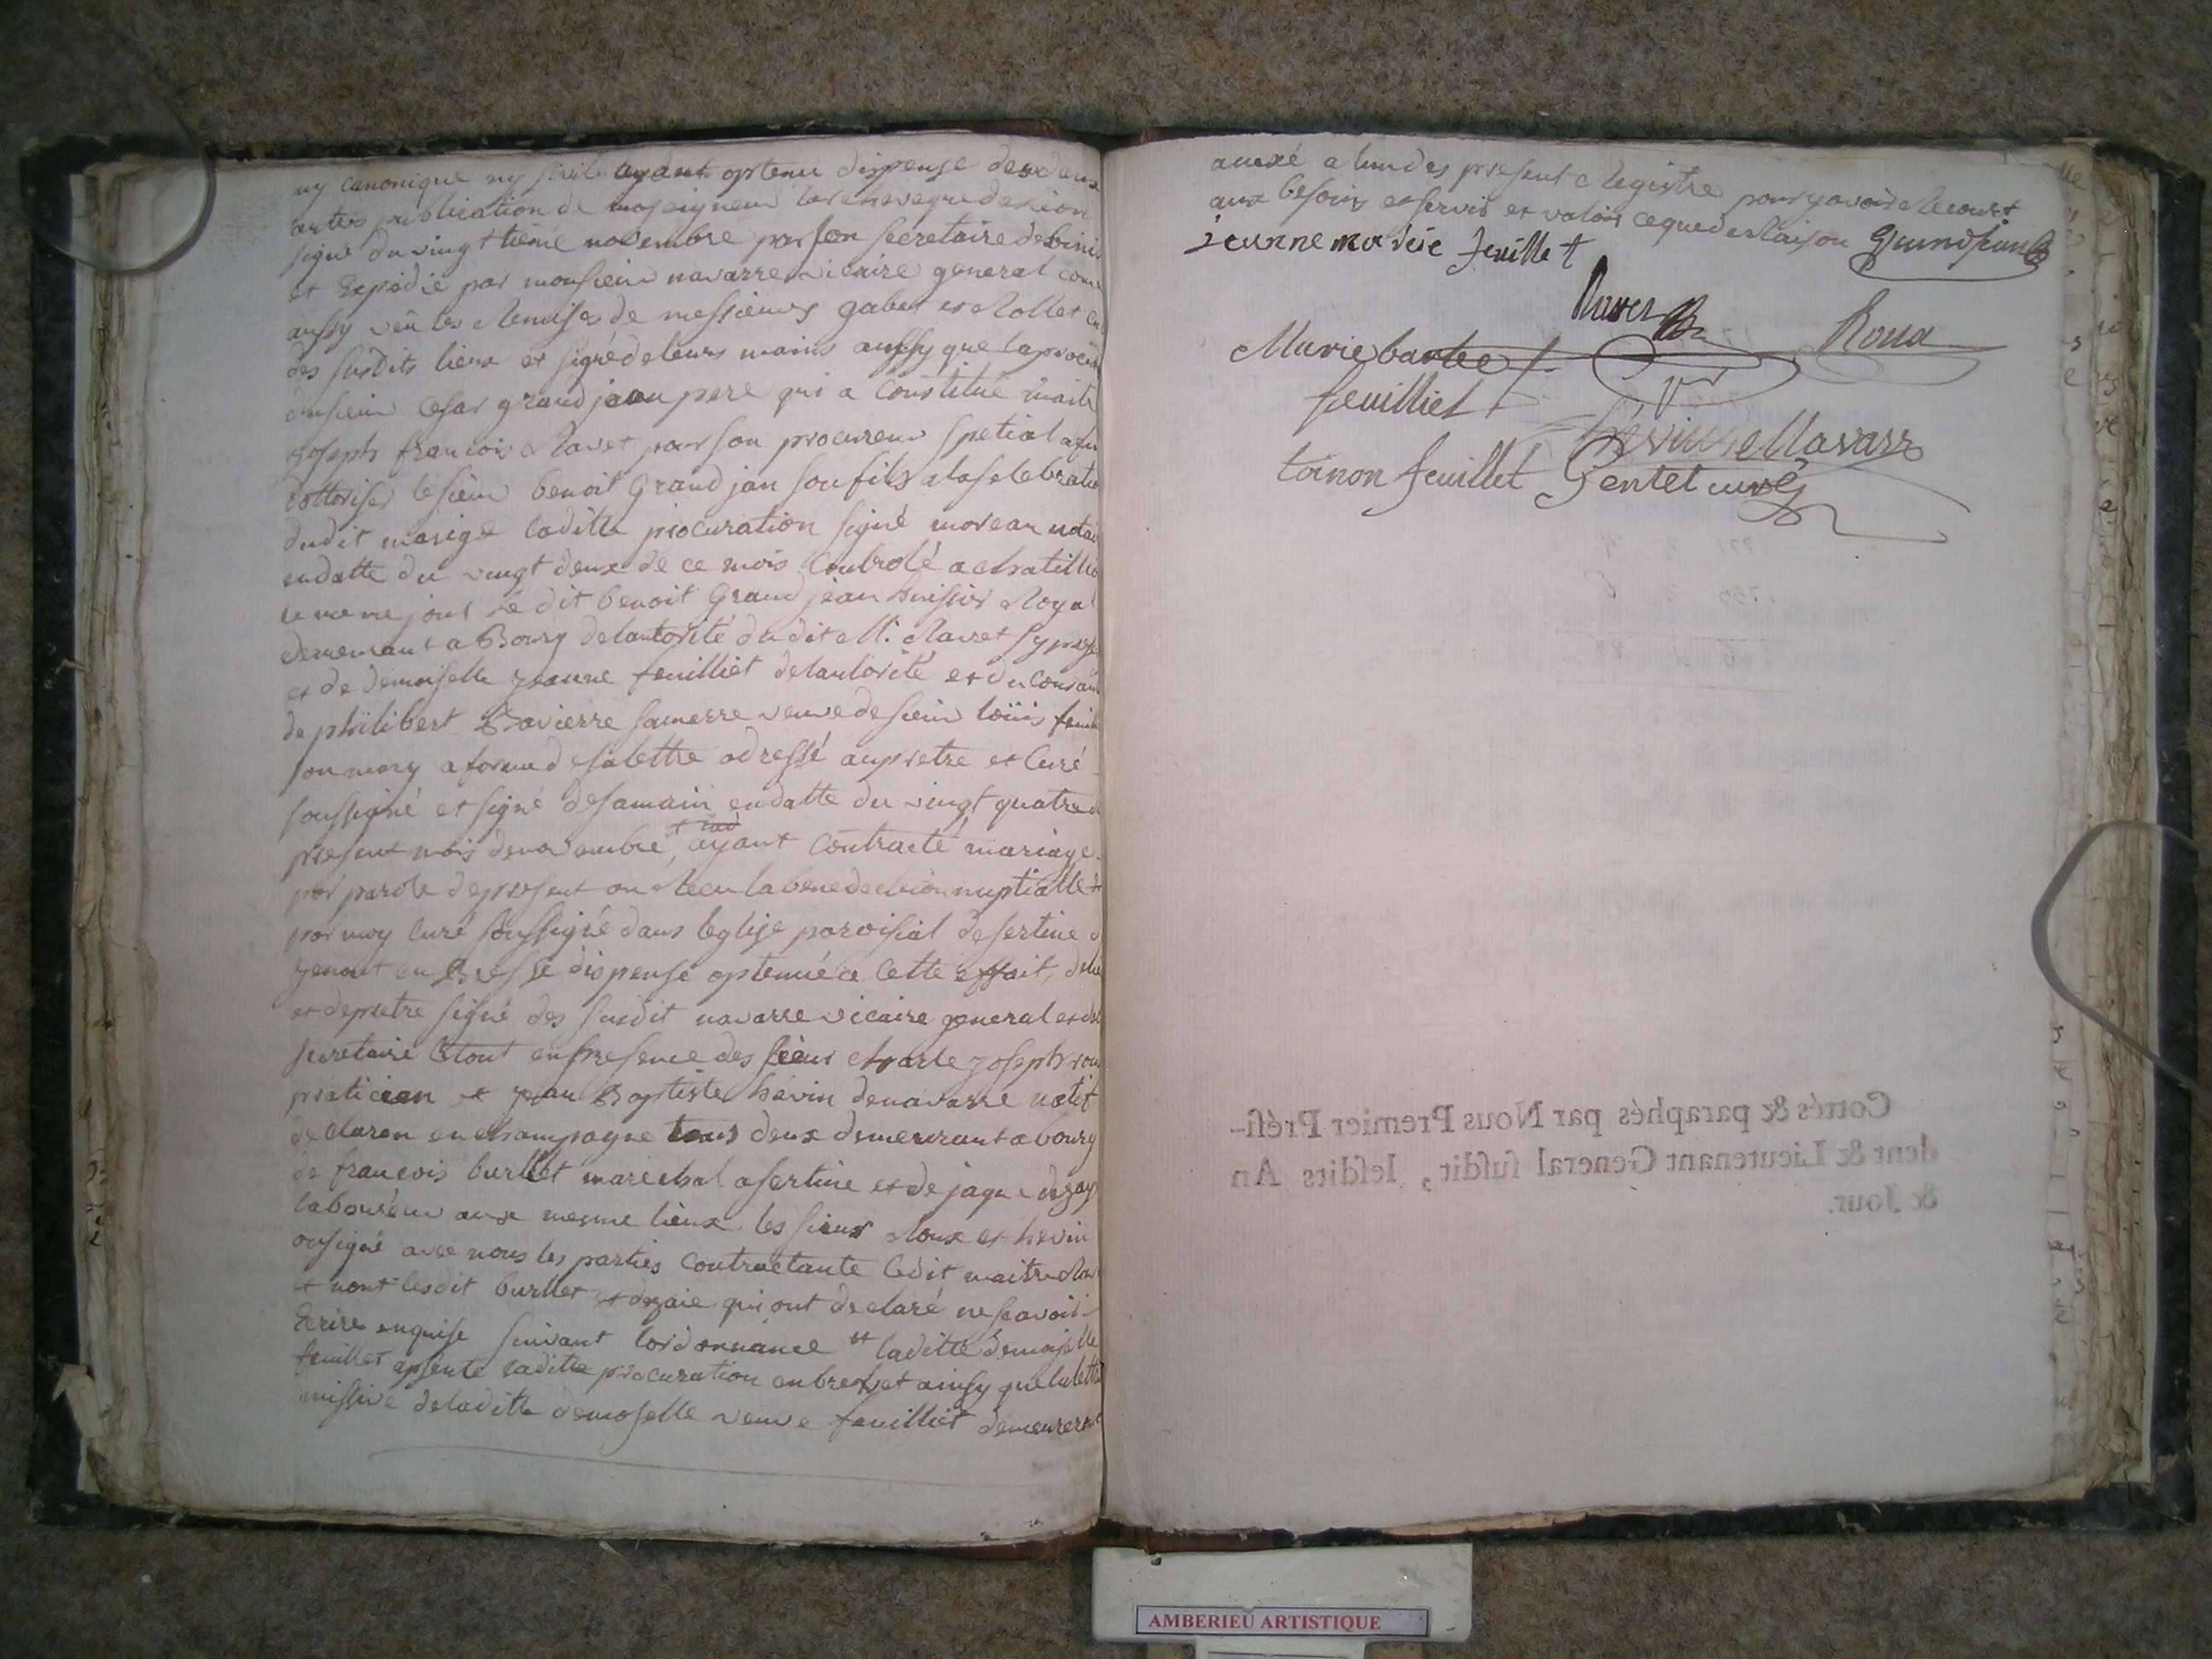 ny canonique ny sivile ayant optenu dispense des deux
autes publication de moseigneur larchevaque de lion
signé du vingtiême novembre par son secretaire
et Expédié par monsieur navarre vicaire general comme
aussy vëu les Remises de messieurs gabet et Rollet
des susdits lieux et signé de leurs mains aussy que la procu
dusieur Cesar grand jean pere qui a Constitué maitr
joseph francois Ravet pour son procureur spetial afin
dottoriser le sieur benoit Grand jan son fils a la selebratio
dudit marige laditte procuration signé moreau notai
en datte du vingt deux de ce mois Controlé a chatillio
le meme jour Le dit benoit Grand jean huissier Royal
demeurant a Bourg delautorité dudit M. Ravet sy prese
et de demoiselle jeanne feuilliet delautorité et du Consan
de philibert Bavierre sa merre veuve de sieur loüis feuil
son mary a forme de sa lettre adressé au pretre et Curé
soussigné et signé de sa main en datte du vingt quatre d
present mois de novembre, ayant Contracté mariage
par parole de present on Recu la benedection nuptialle
par moy Curé soussigné dans leglise paroisial de sertine
en Bresse dispense optenüe a Cette effait,
et de pretre signé des susdit navarre vicaire general et du
secretaire Et tout en presence des sieur charle joseph roux
praticien et jean Baptiste hévin denavarre natif
de claron en champagne tous deux demeurant a bourg
de francois burllet maréchal a sertine et de jaque dezay
laboureur aux mesme lieux les sieur Roux et hevin
on signé avec nous les parties Contractante ledit maitre Rav
et nont lesdit burllet et dezaie qui ont declaré ne scavoir
Ecrire enquise suivant lordonnance et laditte demoiselle
feuillet apsente laditte procuration en brevet ainsy que la lettre
missive de laditte demoselle veuve feuilliet demeureront
anexé a lun des present Registre pour y avoir Recourt
aux besoins et servir et valoir ce que de Raison Grandjean
jeanne marie feuillet
Ravet
Roux
Marie barbe
feuilliet
hévin de Navarre
toinon feuillet Pentet curé
Cottés & paraphés par Nous Premier Prési-
dent & Lieutenant General susdit, lesdits An
& Jour.
AMBERIEU ARTISTIQUE